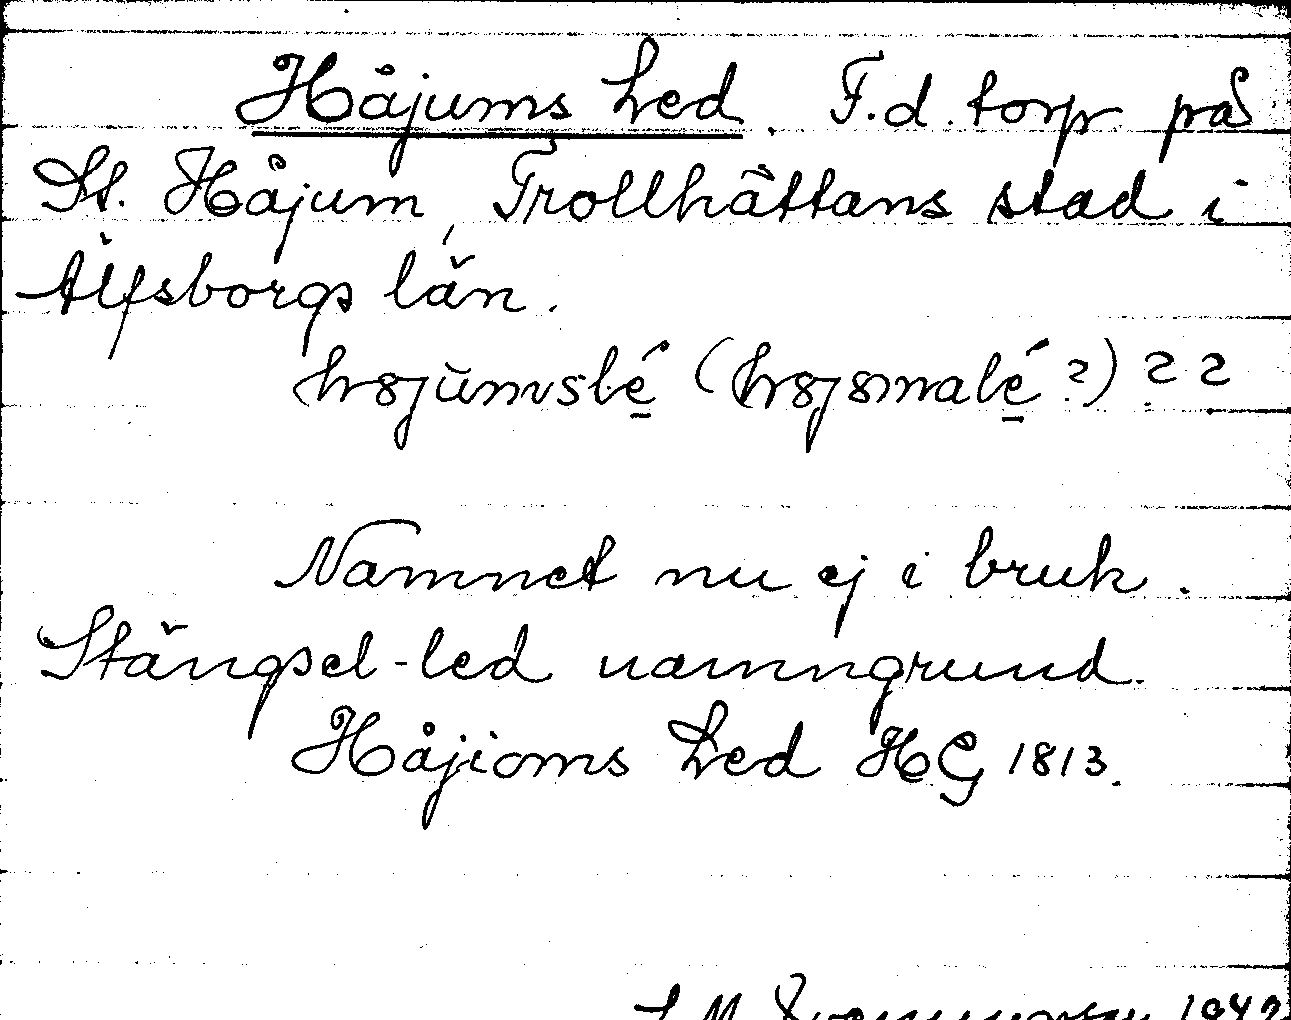 Håjums Led. F.d. torp på
St. Håjum, Trollhättans stad i
Älfsborgs län.
Namnet nu ej i bruk.
Stängsel-led namngrund.
Håjioms Led HG 1813.